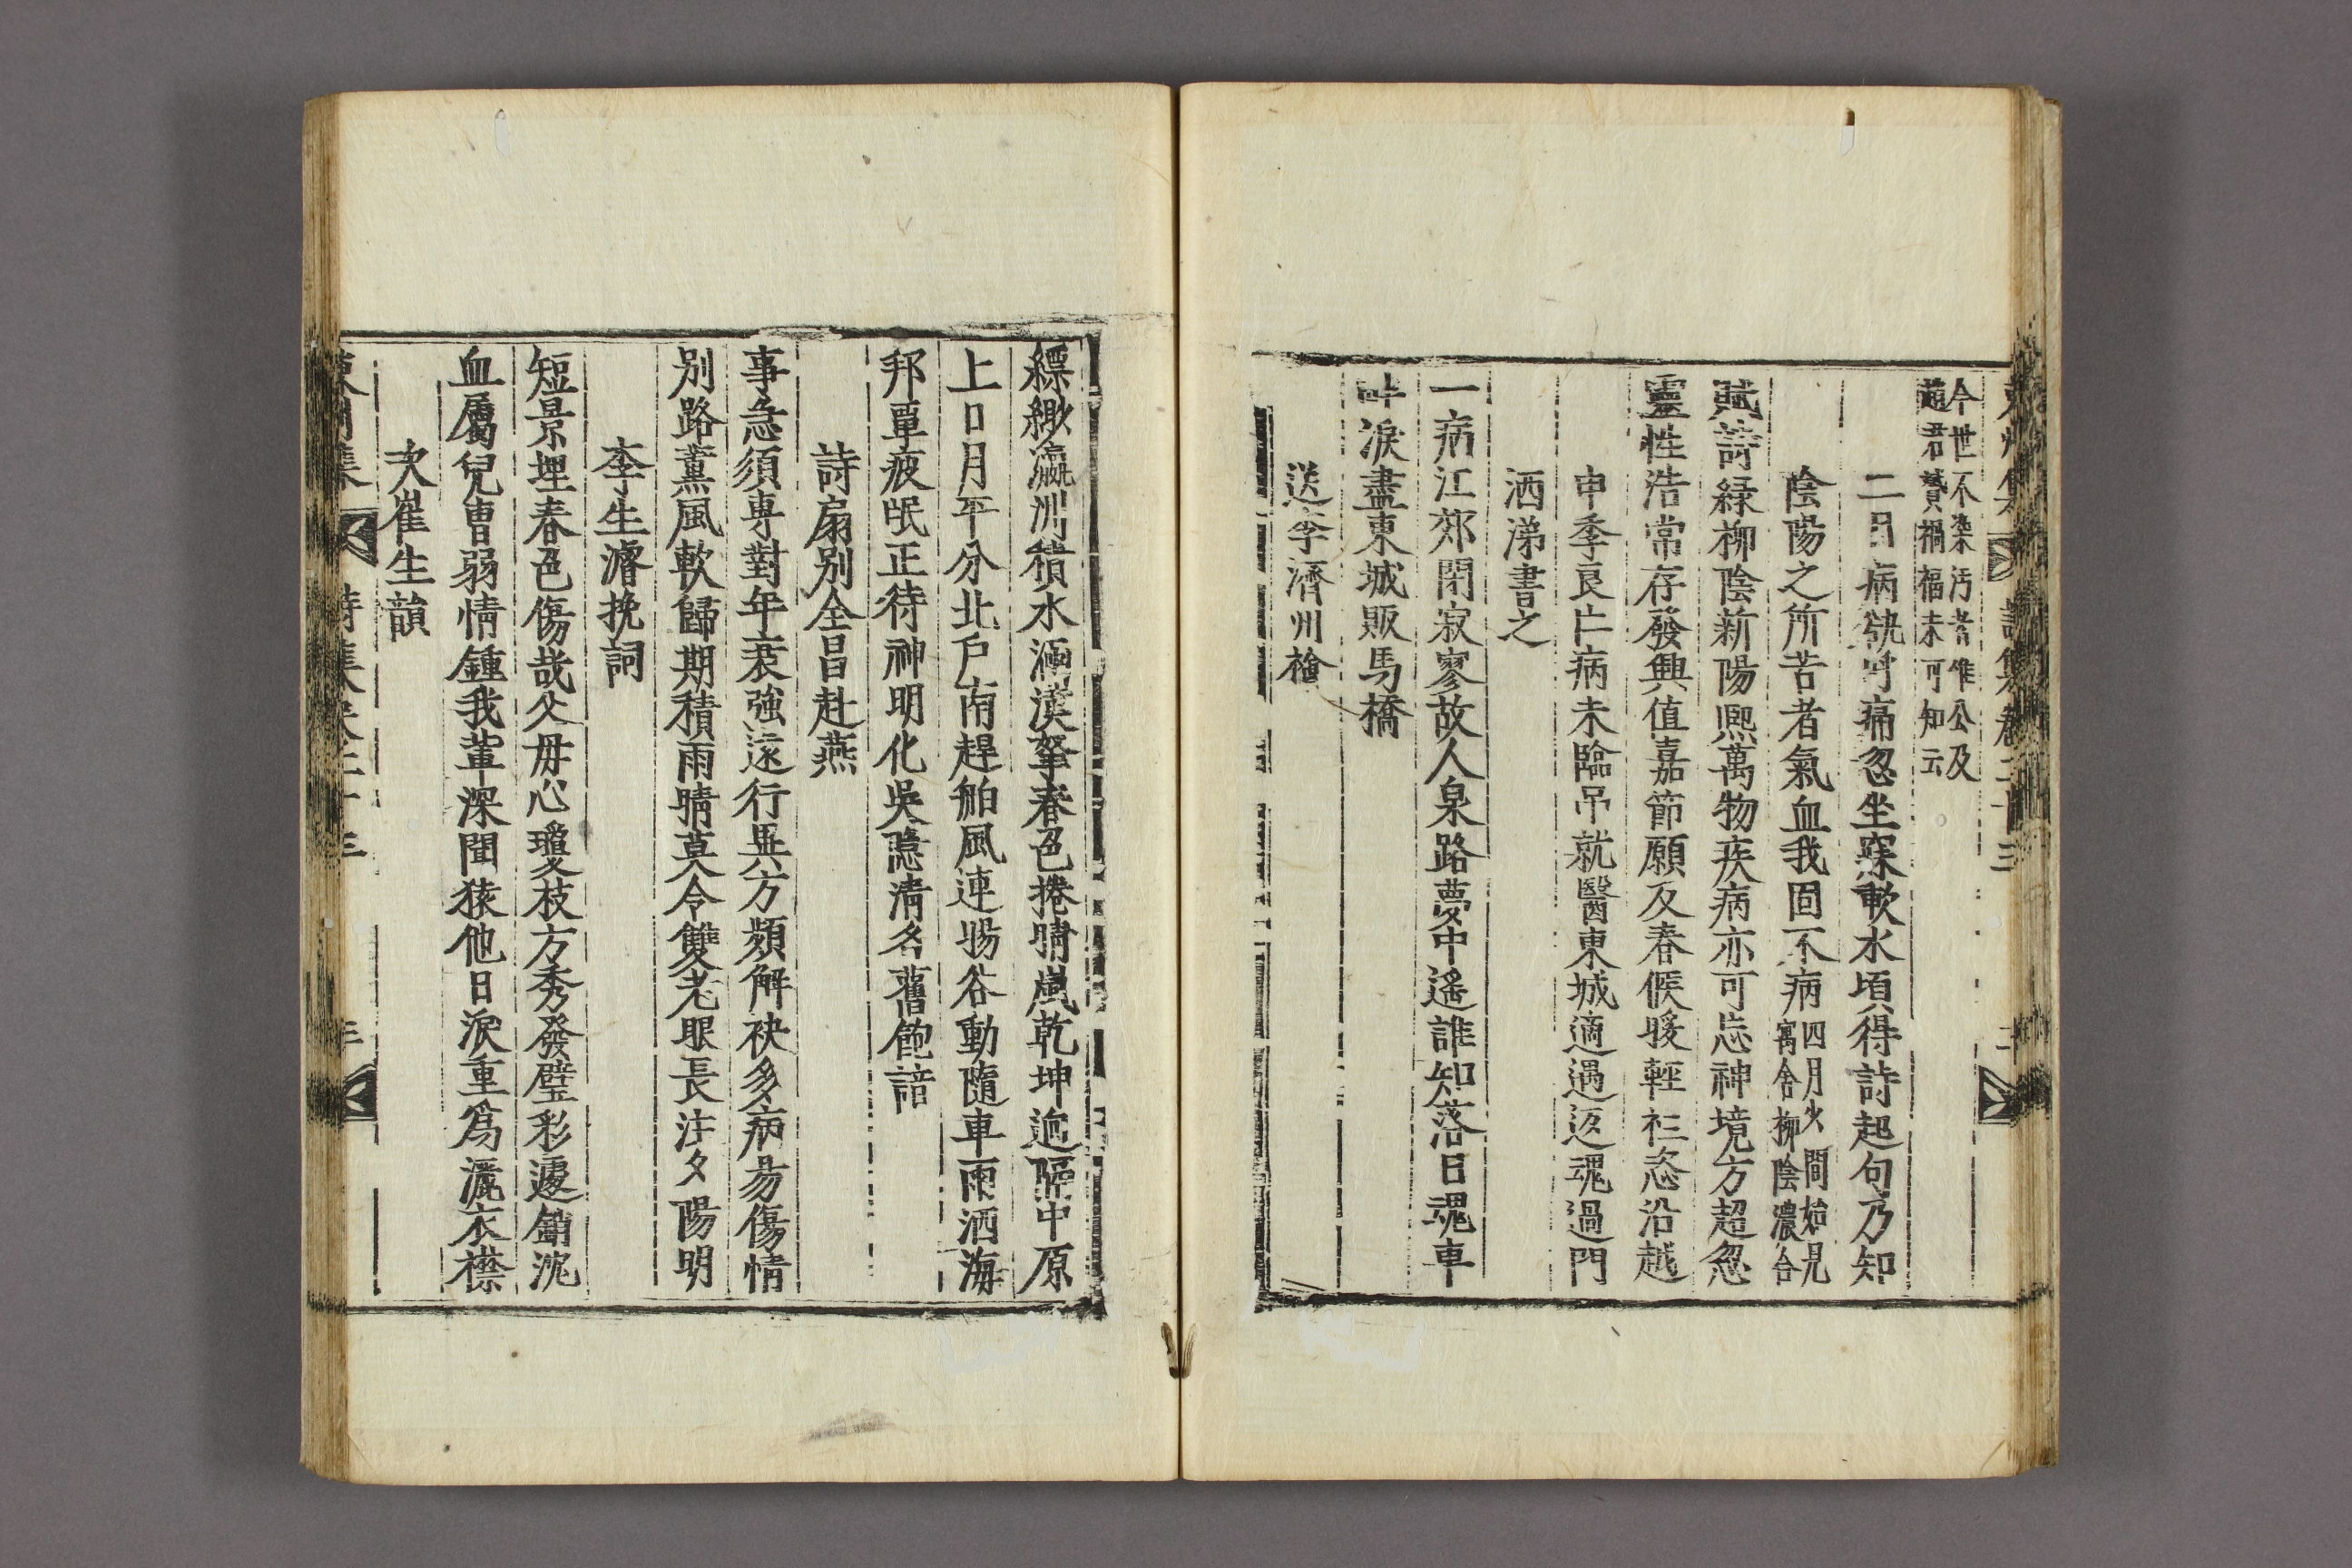 今世不染汚者惟公及
趙君贊禍福未可知云
二日病乎痛忽坐寐軟水頃得詩起句乃知
陰陽之所苦者氣血我固不病
四月少間始見
寓舍柳陰濃合
賦詩綠柳陰新陽熙萬物疾病亦可忘神境方超忽
靈性浩常存發興值嘉節願及春候暖輕衫恣沿越
申季良亡病未臨吊就醫東城適過返魂過門
洒涕書之
一病江郊閉寂寥故人泉路夢中遙誰知落日魂車
淚盡東城販馬橋
送李濟州
縹緲瀛洲積水涵漢拏春色捲晴嵐乾坤逈隔中原
上日月平分北戶南趕舶風連暘谷動隨車雨洒海
邦覃疲氓正待神明化吳隱淸名舊飽諳
詩扇别全昌赴燕
事急須專對年衰強遠行異方頻解袂多病易傷情
别路薰風軟歸期積雨晴莫令雙老眼長注夕陽明
李生濬挽詞
短景埋春色傷哉父母心瓊枝方秀發璧彩遽銷沈
血屬兒曹弱情鍾我輩深聞猿他日淚重爲灑衣襟
次崔生韻